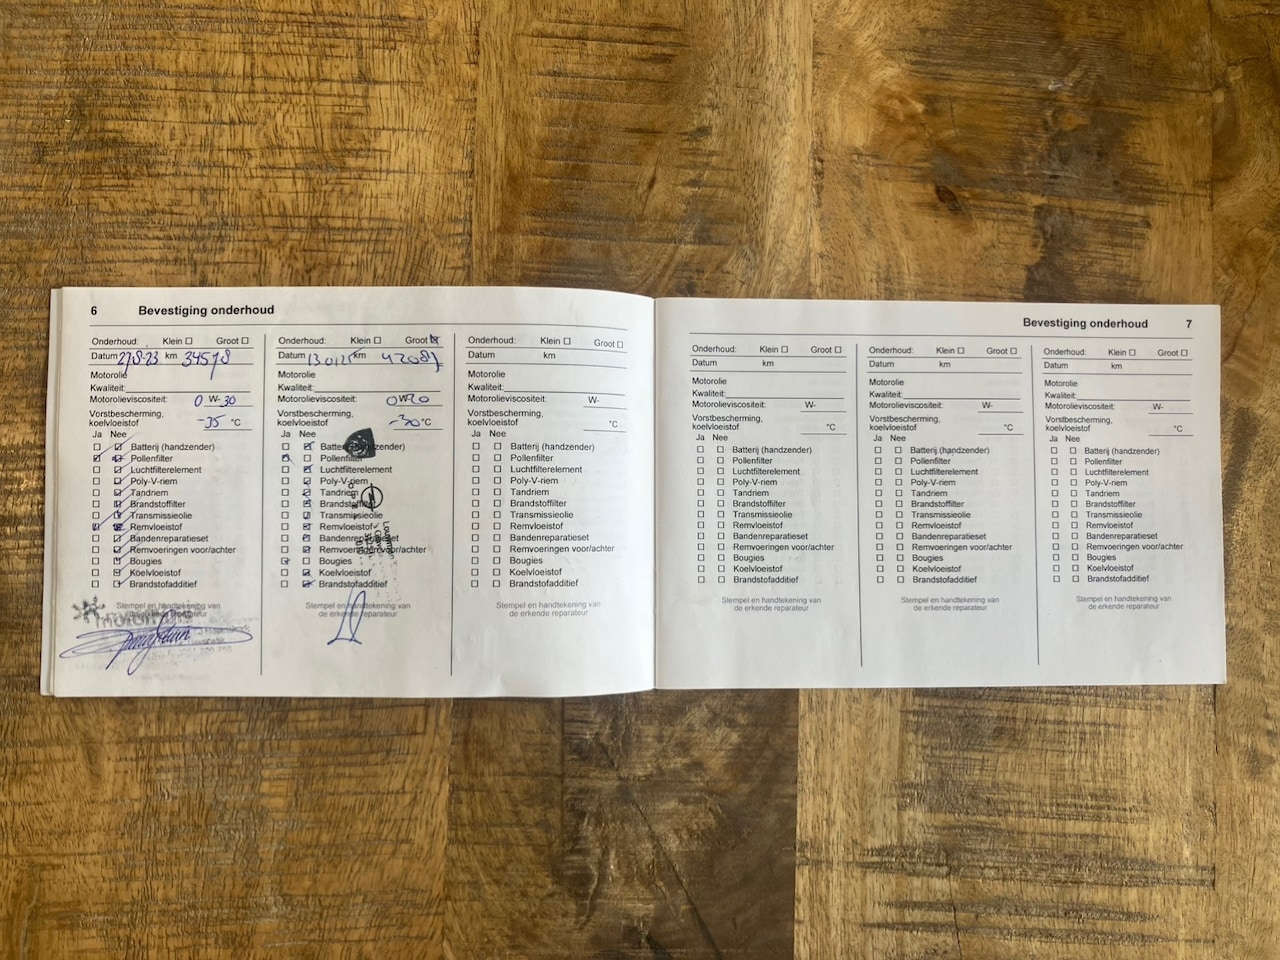 6 Bevestiging onderhoud
Onderhoud: Klein ☐ Groot ☐
Datum 27-8-23 km 34578
Motorolie
Kwaliteit:
Motorolieviscositeit: 0 W- 30
Vorstbescherming,
koelvloeistof -35 °C
Ja Nee
Batterij (handzender)
Pollenfilter
Luchtfilterelement
Poly-V-riem
Tandriem
Brandstoffilter
Transmissieolie
Remvloeistof
Bandenreparatieset
Remvoeringen voor/achter
Bougies
Koelvloeistof
Brandstofadditief
Stempel en handtekening van
de erkende reparateur
Onderhoud: Klein ☐ Groot ☑
Datum 13 01 25 km
Motorolie
Kwaliteit:
Motorolieviscositeit: 0W20
Vorstbescherming,
koelvloeistof -30 °C
Ja Nee
Batterij (handzender)
Pollenfilter
Luchtfilterelement
Poly-V-riem
Tandriem
Brandstoffilter
Transmissieolie
Remvloeistof
Bandenreparatieset
Remvoeringen voor/achter
Bougies
Koelvloeistof
Brandstofadditief
Stempel en handtekening van
de erkende reparateur
Onderhoud: Klein ☐ Groot ☐
Datum km
Motorolie
Kwaliteit:
Motorolieviscositeit: W-
Vorstbescherming,
koelvloeistof °C
Ja Nee
☐ ☐ Batterij (handzender)
☐ ☐ Pollenfilter
☐ ☐ Luchtfilterelement
☐ ☐ Poly-V-riem
☐ ☐ Tandriem
☐ ☐ Brandstoffilter
☐ ☐ Transmissieolie
☐ ☐ Remvloeistof
☐ ☐ Bandenreparatieset
☐ ☐ Remvoeringen voor/achter
☐ ☐ Bougies
☐ ☐ Koelvloeistof
☐ ☐ Brandstofadditief
Stempel en handtekening van
de erkende reparateur
Bevestiging onderhoud 7
Onderhoud: Klein ☐ Groot ☐
Datum km
Motorolie
Kwaliteit:
Motorolieviscositeit: W-
Vorstbescherming,
koelvloeistof °C
Ja Nee
☐ ☐ Batterij (handzender)
☐ ☐ Pollenfilter
☐ ☐ Luchtfilterelement
☐ ☐ Poly-V-riem
☐ ☐ Tandriem
☐ ☐ Brandstoffilter
☐ ☐ Transmissieolie
☐ ☐ Remvloeistof
☐ ☐ Bandenreparatieset
☐ ☐ Remvoeringen voor/achter
☐ ☐ Bougies
☐ ☐ Koelvloeistof
☐ ☐ Brandstofadditief
Stempel en handtekening van
de erkende reparateur
Onderhoud: Klein ☐ Groot ☐
Datum km
Motorolie
Kwaliteit:
Motorolieviscositeit: W-
Vorstbescherming,
koelvloeistof °C
Ja Nee
☐ ☐ Batterij (handzender)
☐ ☐ Pollenfilter
☐ ☐ Luchtfilterelement
☐ ☐ Poly-V-riem
☐ ☐ Tandriem
☐ ☐ Brandstoffilter
☐ ☐ Transmissieolie
☐ ☐ Remvloeistof
☐ ☐ Bandenreparatieset
☐ ☐ Remvoeringen voor/achter
☐ ☐ Bougies
☐ ☐ Koelvloeistof
☐ ☐ Brandstofadditief
Stempel en handtekening van
de erkende reparateur
Onderhoud: Klein ☐ Groot ☐
Datum km
Motorolie
Kwaliteit:
Motorolieviscositeit: W-
Vorstbescherming,
koelvloeistof °C
Ja Nee
☐ ☐ Batterij (handzender)
☐ ☐ Pollenfilter
☐ ☐ Luchtfilterelement
☐ ☐ Poly-V-riem
☐ ☐ Tandriem
☐ ☐ Brandstoffilter
☐ ☐ Transmissieolie
☐ ☐ Remvloeistof
☐ ☐ Bandenreparatieset
☐ ☐ Remvoeringen voor/achter
☐ ☐ Bougies
☐ ☐ Koelvloeistof
☐ ☐ Brandstofadditief
Stempel en handtekening van
de erkende reparateur